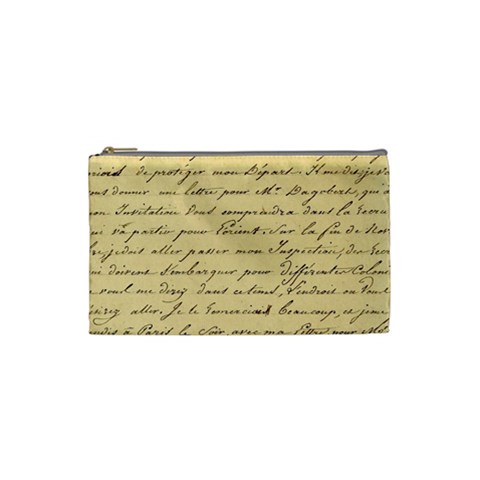 de protéger mon Départ. Il me dit, je
donner une lettre pour Mr. Dagobert, qui
Invitation Vous comprendra dans la
qui va partir pour l'orient. Sur la fin de
je dois aller passer mon Inspection, des
qui doivent s'embarquer pour différentes
vous me direz dans ce tems, l'endroit ou Vous
aller. Je le Remerciais beaucoup, et je me
à Paris le Soir, avec ma lettre pour